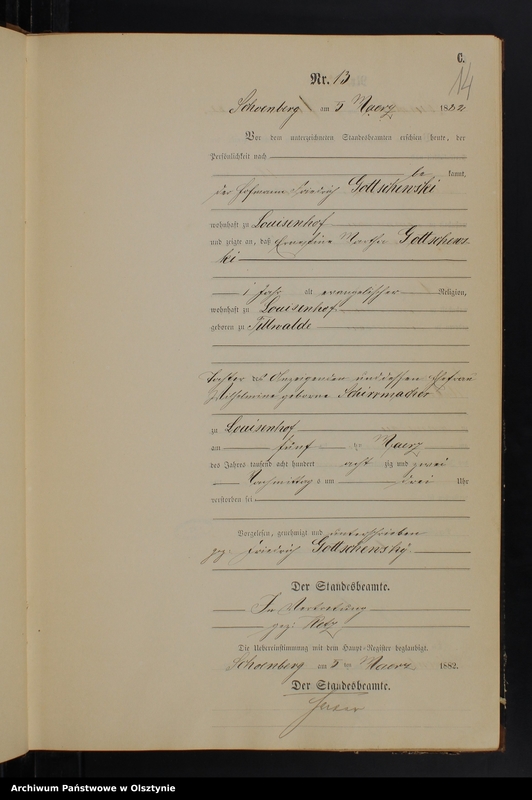 C.
14
Nr. 13
Schoenberg am 5 Maerz 1882
Vor dem unterzeichneten Standesbeamten erschien heute, der
Persönlichkeit nach
be kannt,
der Hofmann Friedrich Gottschewski
wohnhaft zu Louisenhof
und zeigte an, daß Ernestine Martha Gottschews-
ki
1 Jahr alt evangelischer Religion,
wohnhaft zu Louisenhof
geboren zu Tillwalde
Tochter des Anzeigenden und dessen Ehefrau
Wilhelmine geborne Schirrmacher
zu Louisenhof
am fünf ten Maerz
des Jahres tausend acht hundert acht zig und zwei
Nachmittag s um drei Uhr
verstorben sei
Vorgelesen, genehmigt und unterschrieben
gez. Friedrich Gottschewsky.
Der Standesbeamte.
In Vertretung
gez.
Die Uebereinstimmung mit dem Haupt-Register beglaubigt.
Schoenberg am 5 ten Maerz 1882.
Der Standesbeamte.
Archiwum Państwowe w Olsztynie